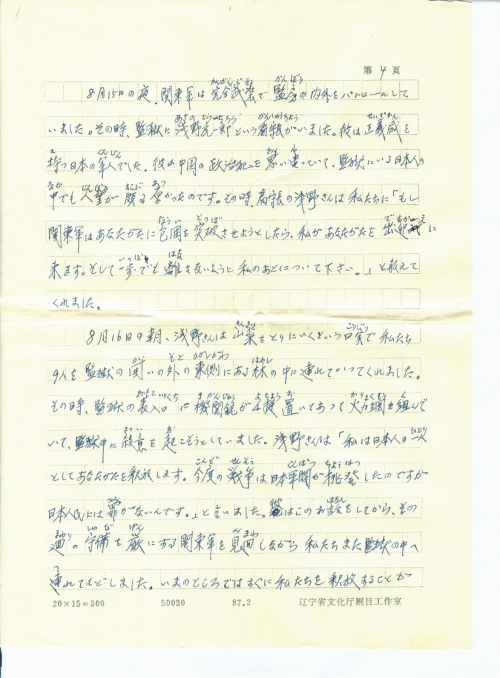 第4页
8月15日の夜、関東軍は完全武装で監房の内外をパトロールして
いました。その時、監獄に浅野という看守がいました。彼は正義感を
持つ日本の軍人でした。彼は中国の政治犯を思い遣っていて、監獄にいる日本人の
中でも人望が頗る厚かったのです。その時、浅野さんは私たちに「もし
関東軍はあなたがたに包囲を突破させようとしたら、私があなたがたを出迎えに
来ます。そして一歩でも離さないように私のあとについて下さい。」と教えて
くれました。
8月16日の朝、浅野さんは山菜をとりにいくという口実で私たち
9人を監獄の囲いの外の東側にある林の中に連れていってくれました。
その時、監獄の表入口に機関銃が4挺置いてあって火力網を組んで
いて、監獄中に殺意を起こそうとしていました。浅野さんは「私は日本人の一人
としてあなたがたを釈放します。今度の戦争は日本軍閥が挑発したのですが
日本人民には罪がないんです。」と言いました。はこのお話をしてから、その
守備を厳にする関東軍を見廻しながら私たちまた監獄の中へ
連れてもどしました。いまのところではすぐに私たちを釈放することが
20×15=300 50030 87.2 辽宁省文化厅剧目工作室